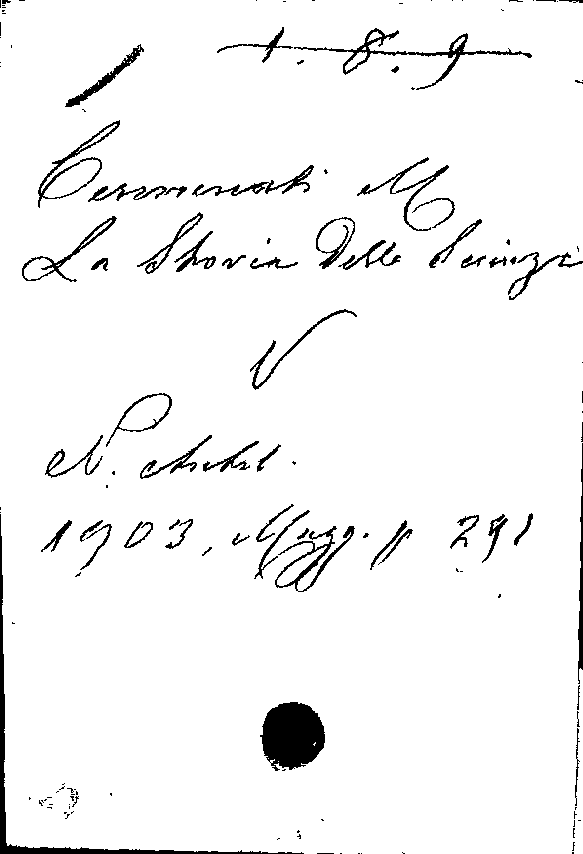 1. 8. 9
Cermenati M
La Storia Delle Scienze
V
N. Antol.
1903, Magg. p 291